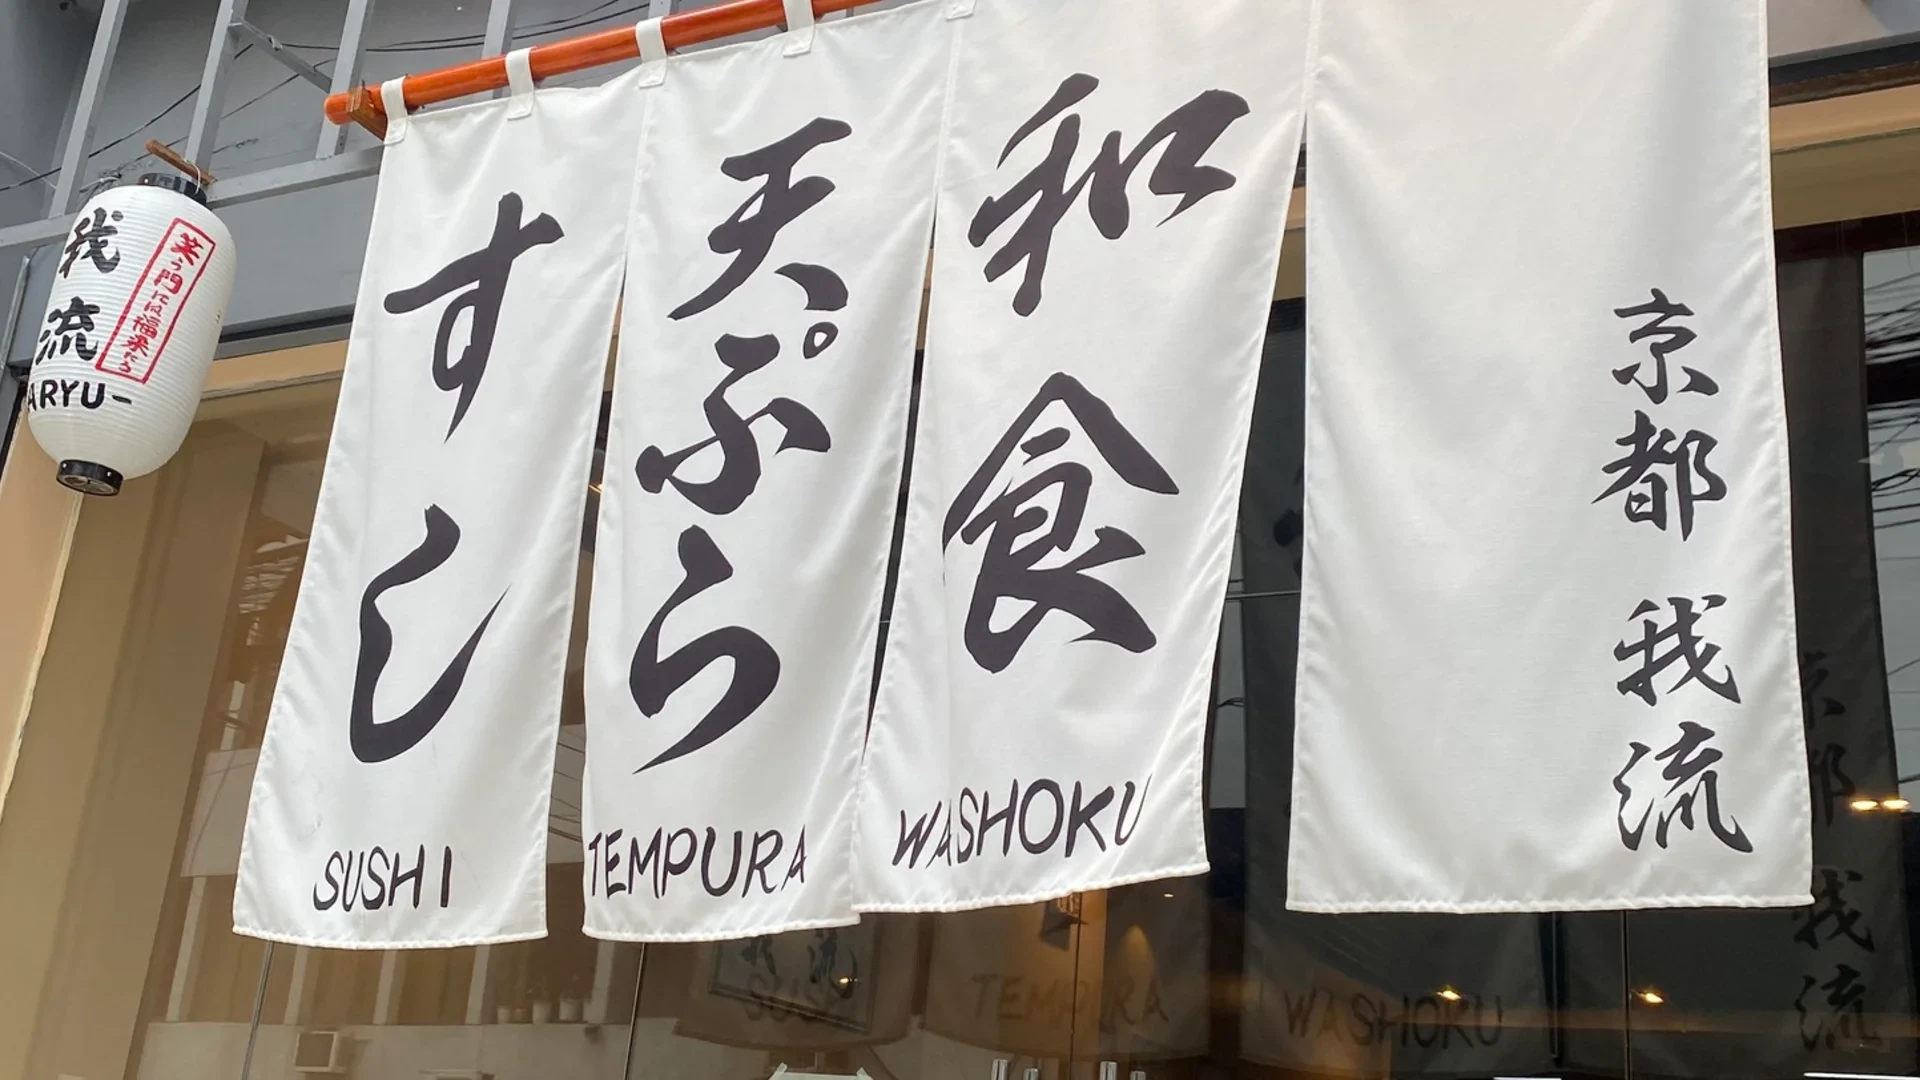 我流
ARYU-
笑う門には福来たる
すし
SUSHI
天ぷら
TEMPURA
和食
WASHOKU
京都 我流